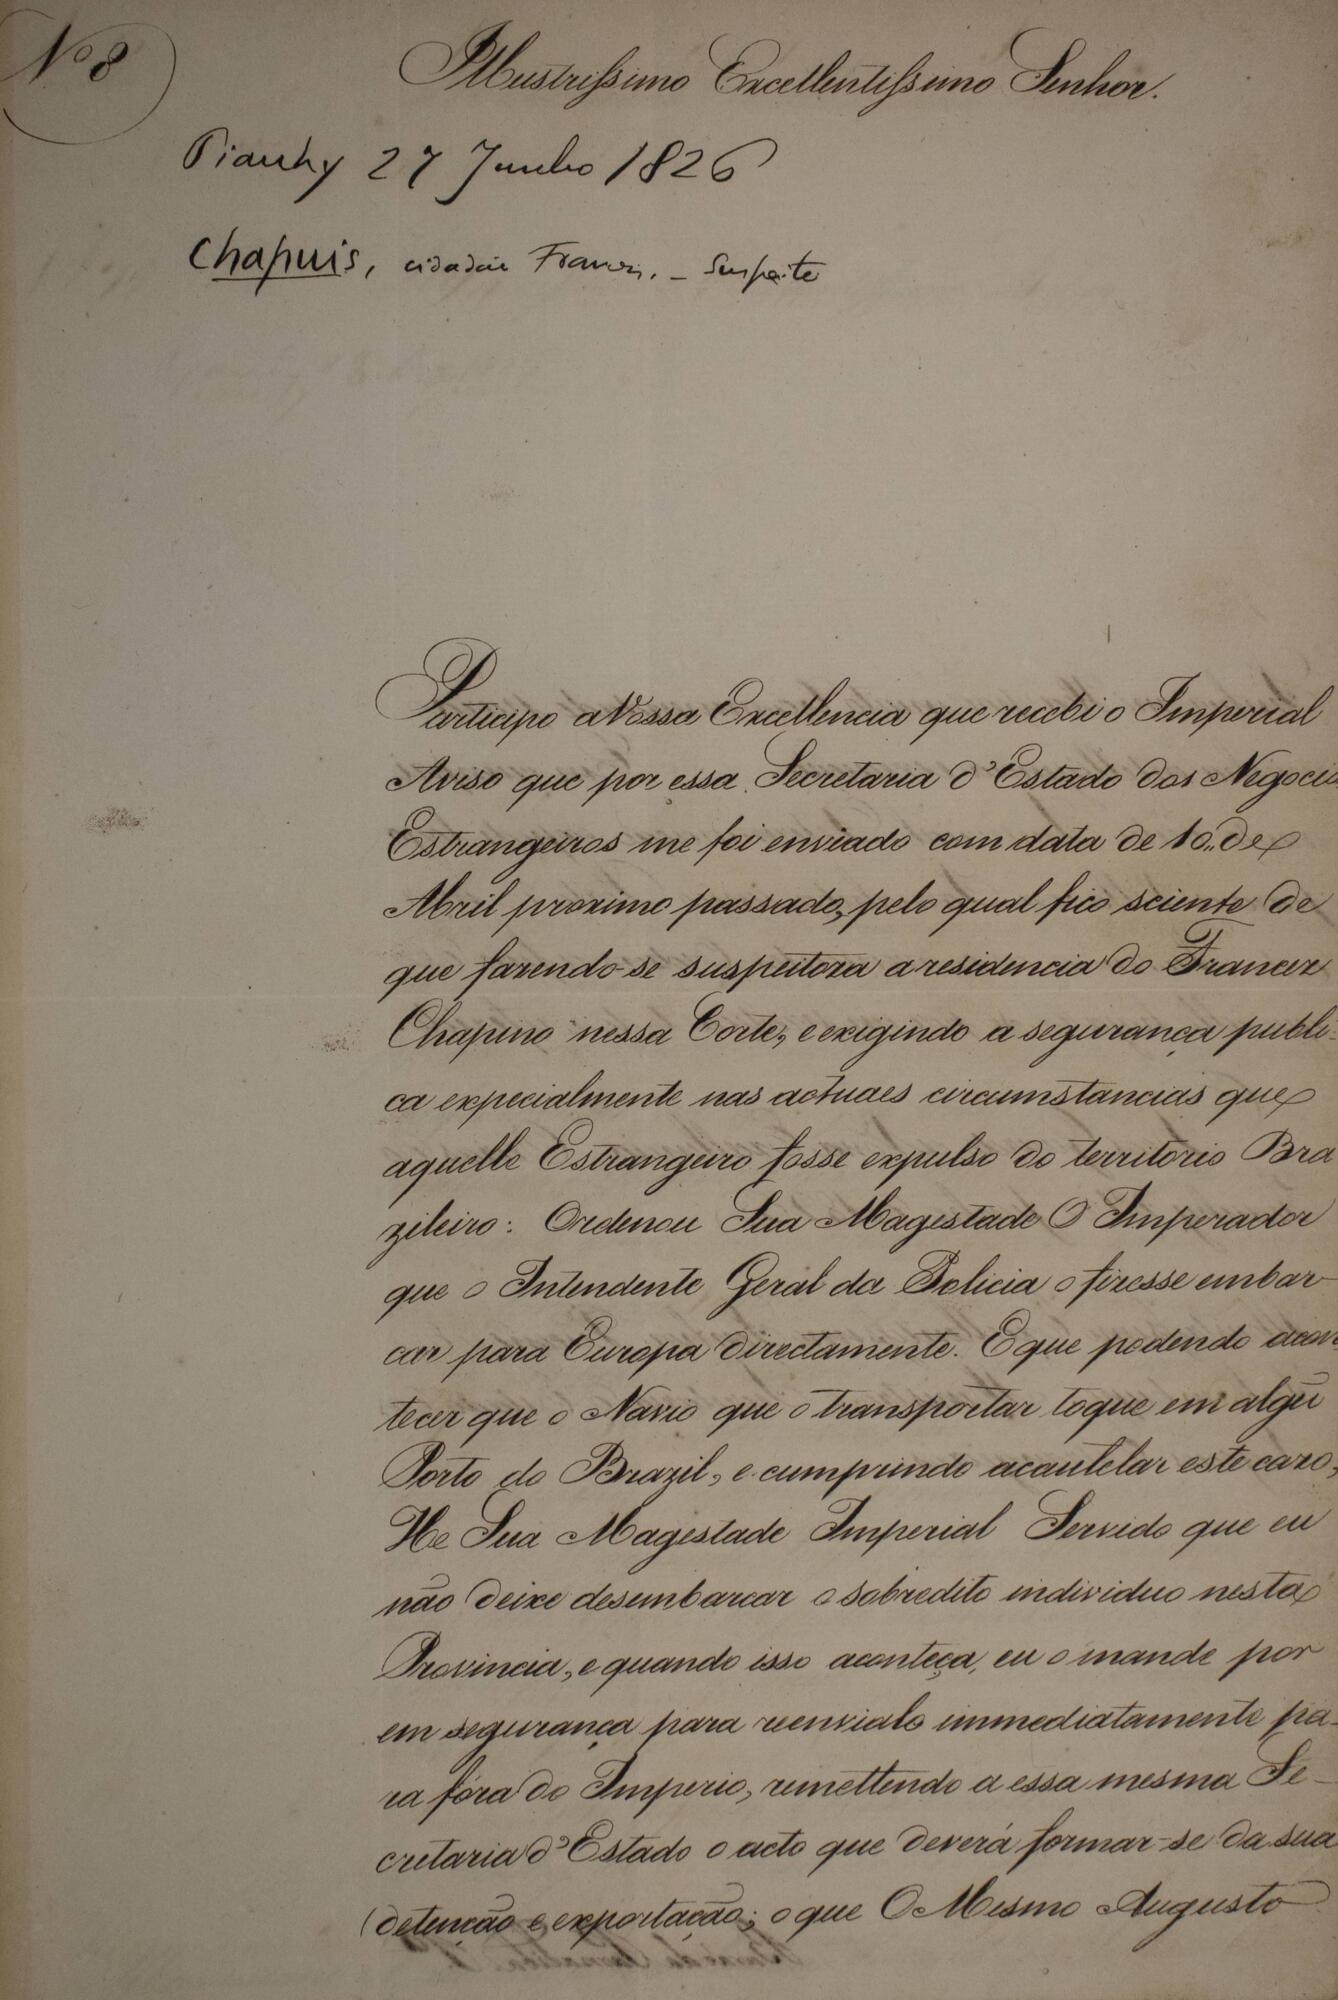 Nº 8
Illustrissimo Excellentissimo Senhor.
Piauhy 27 Junho 1826
Chapuis, cidadão Francês. _ Suspeito
Participo a Vossa Excellencia que recebi o Imperial
Aviso que por essa Secretaria d'Estado dos Negocios
Estrangeiros me foi enviado com data de 10 de
Abril proximo passado, pelo qual fico sciente de
que fazendo-se suspeitoza a residencia do Francez
Chapino nessa Corte, e exigindo a segurança publi-
ca expecialmente nas actuaes circumstancias que
aquelle Estrangeiro fosse expulso do territorio Bra
zileiro: Ordenou Sua Magestade O Imperador
que o Intendente Geral da Policia o fizesse embar-
car para Europa directamente. E que podendo acon
tecer que o Navio que o transportar toque em algũ
Porto do Brazil, e cumprindo acautelar este cazo,
He Sua Magestade Imperial Servido que eu
não deixe desembarcar o sobredito individuo nesta
Provincia, e quando isso aconteça, eu o mande por
em segurança para reenvialo immediatamente pa-
ra fóra do Imperio, remettendo a essa mesma Se-
cretaria d'Estado o acto que deverá formar-se da sua
detenção e exportação; o que O Mesmo Augusto